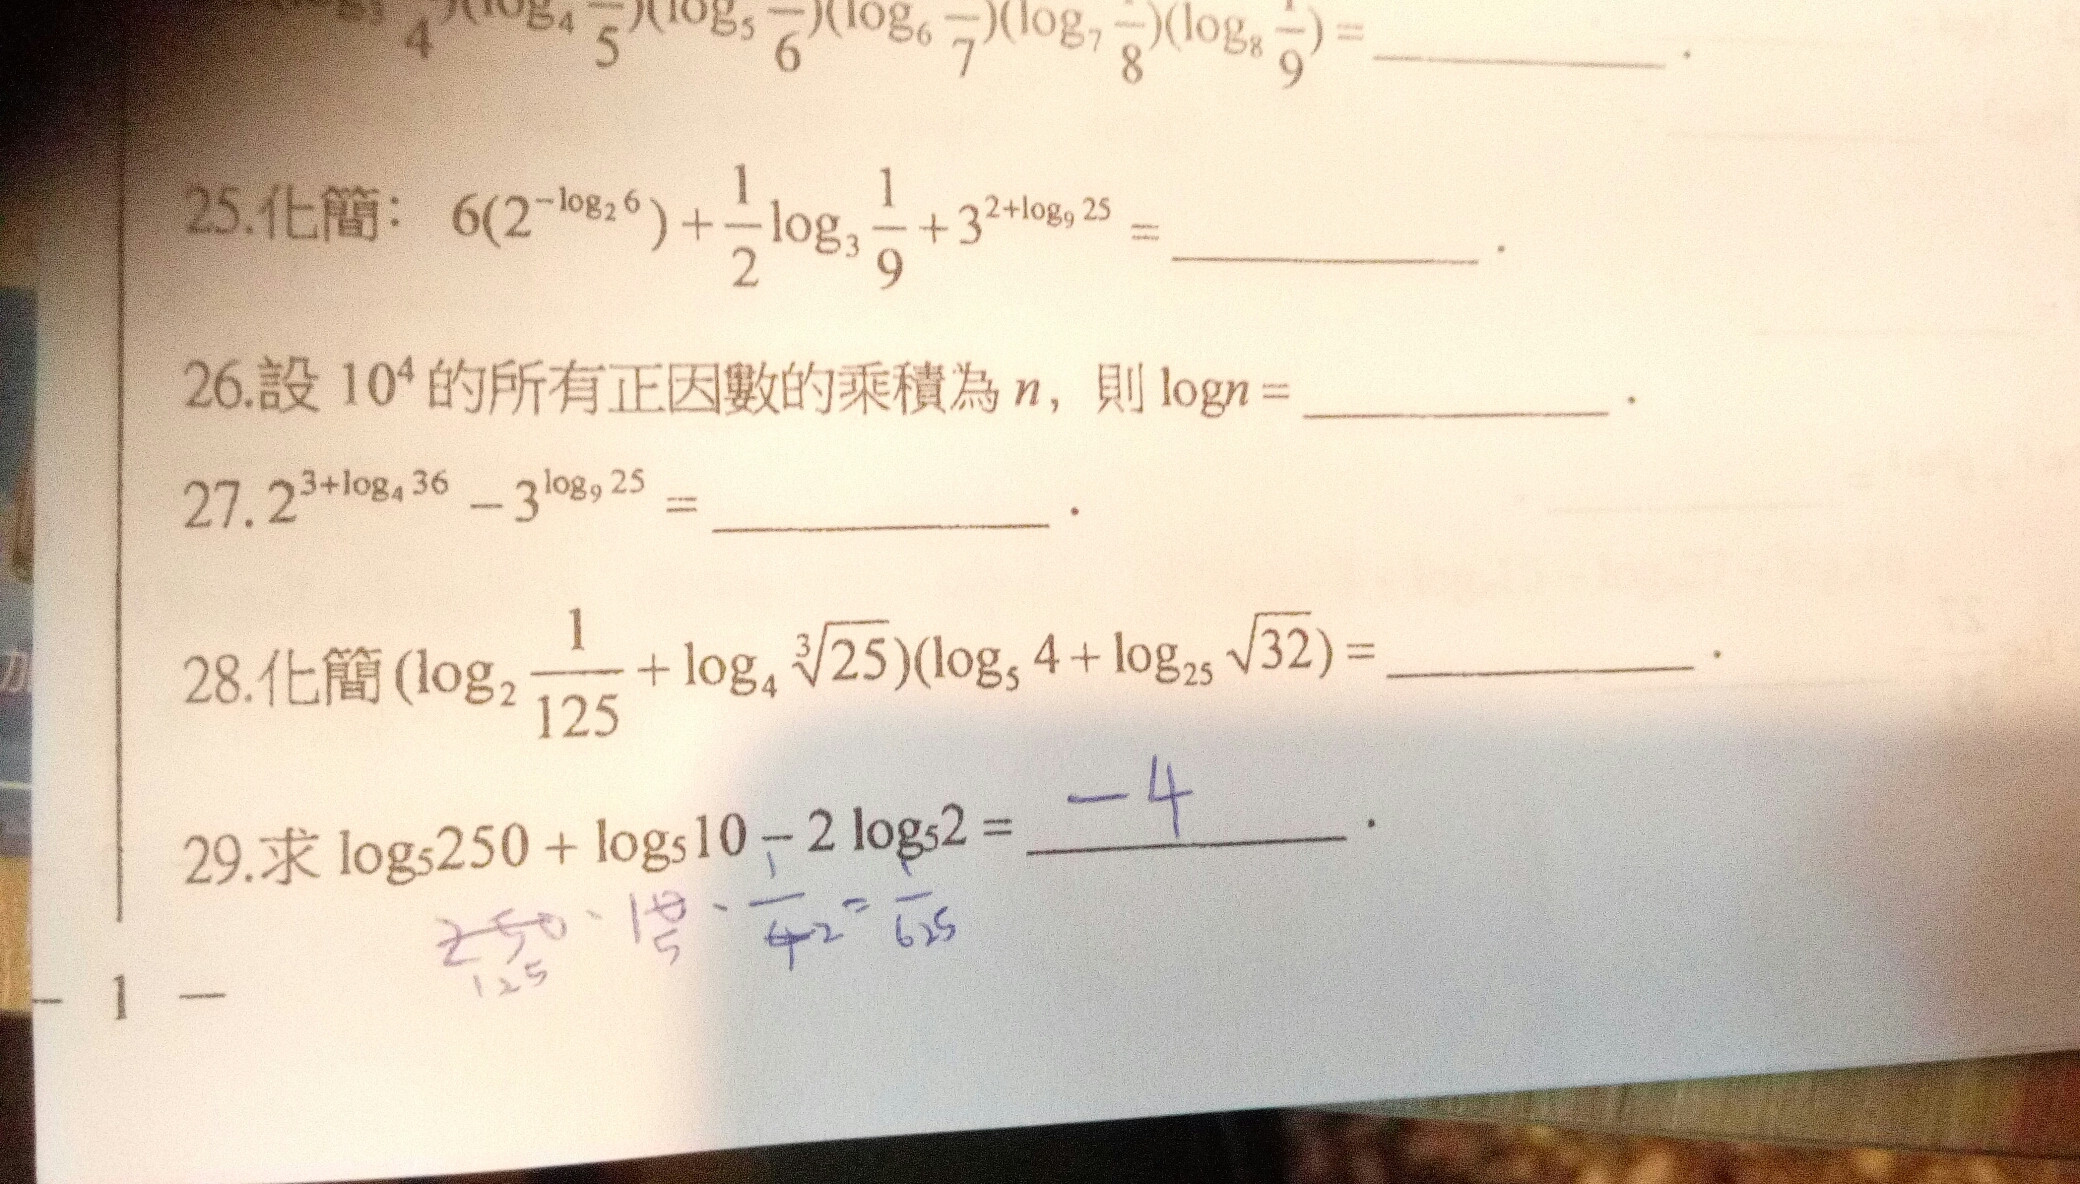 4)(log₄ 1/5)(log₅ 1/6)(log₆ 1/7)(log₇ 1/8)(log₈ 1/9) = ________ .
25.化簡： 6(2^(-log₂6)) + 1/2 log₃ 1/9 + 3^(2+log₉25) = ________ .
26.設 10⁴ 的所有正因數的乘積為 n，則 logn = ________ .
27. 2^(3+log₄36) − 3^(log₉25) = ________ .
28.化簡 (log₂ 1/125 + log₄ ∛25)(log₅ 4 + log₂₅ √32) = ________ .
29.求 log₅250 + log₅10 − 2 log₅2 = −4 .
250 · 10 · 1/4 2 = 1/625
125 5
− 1 −